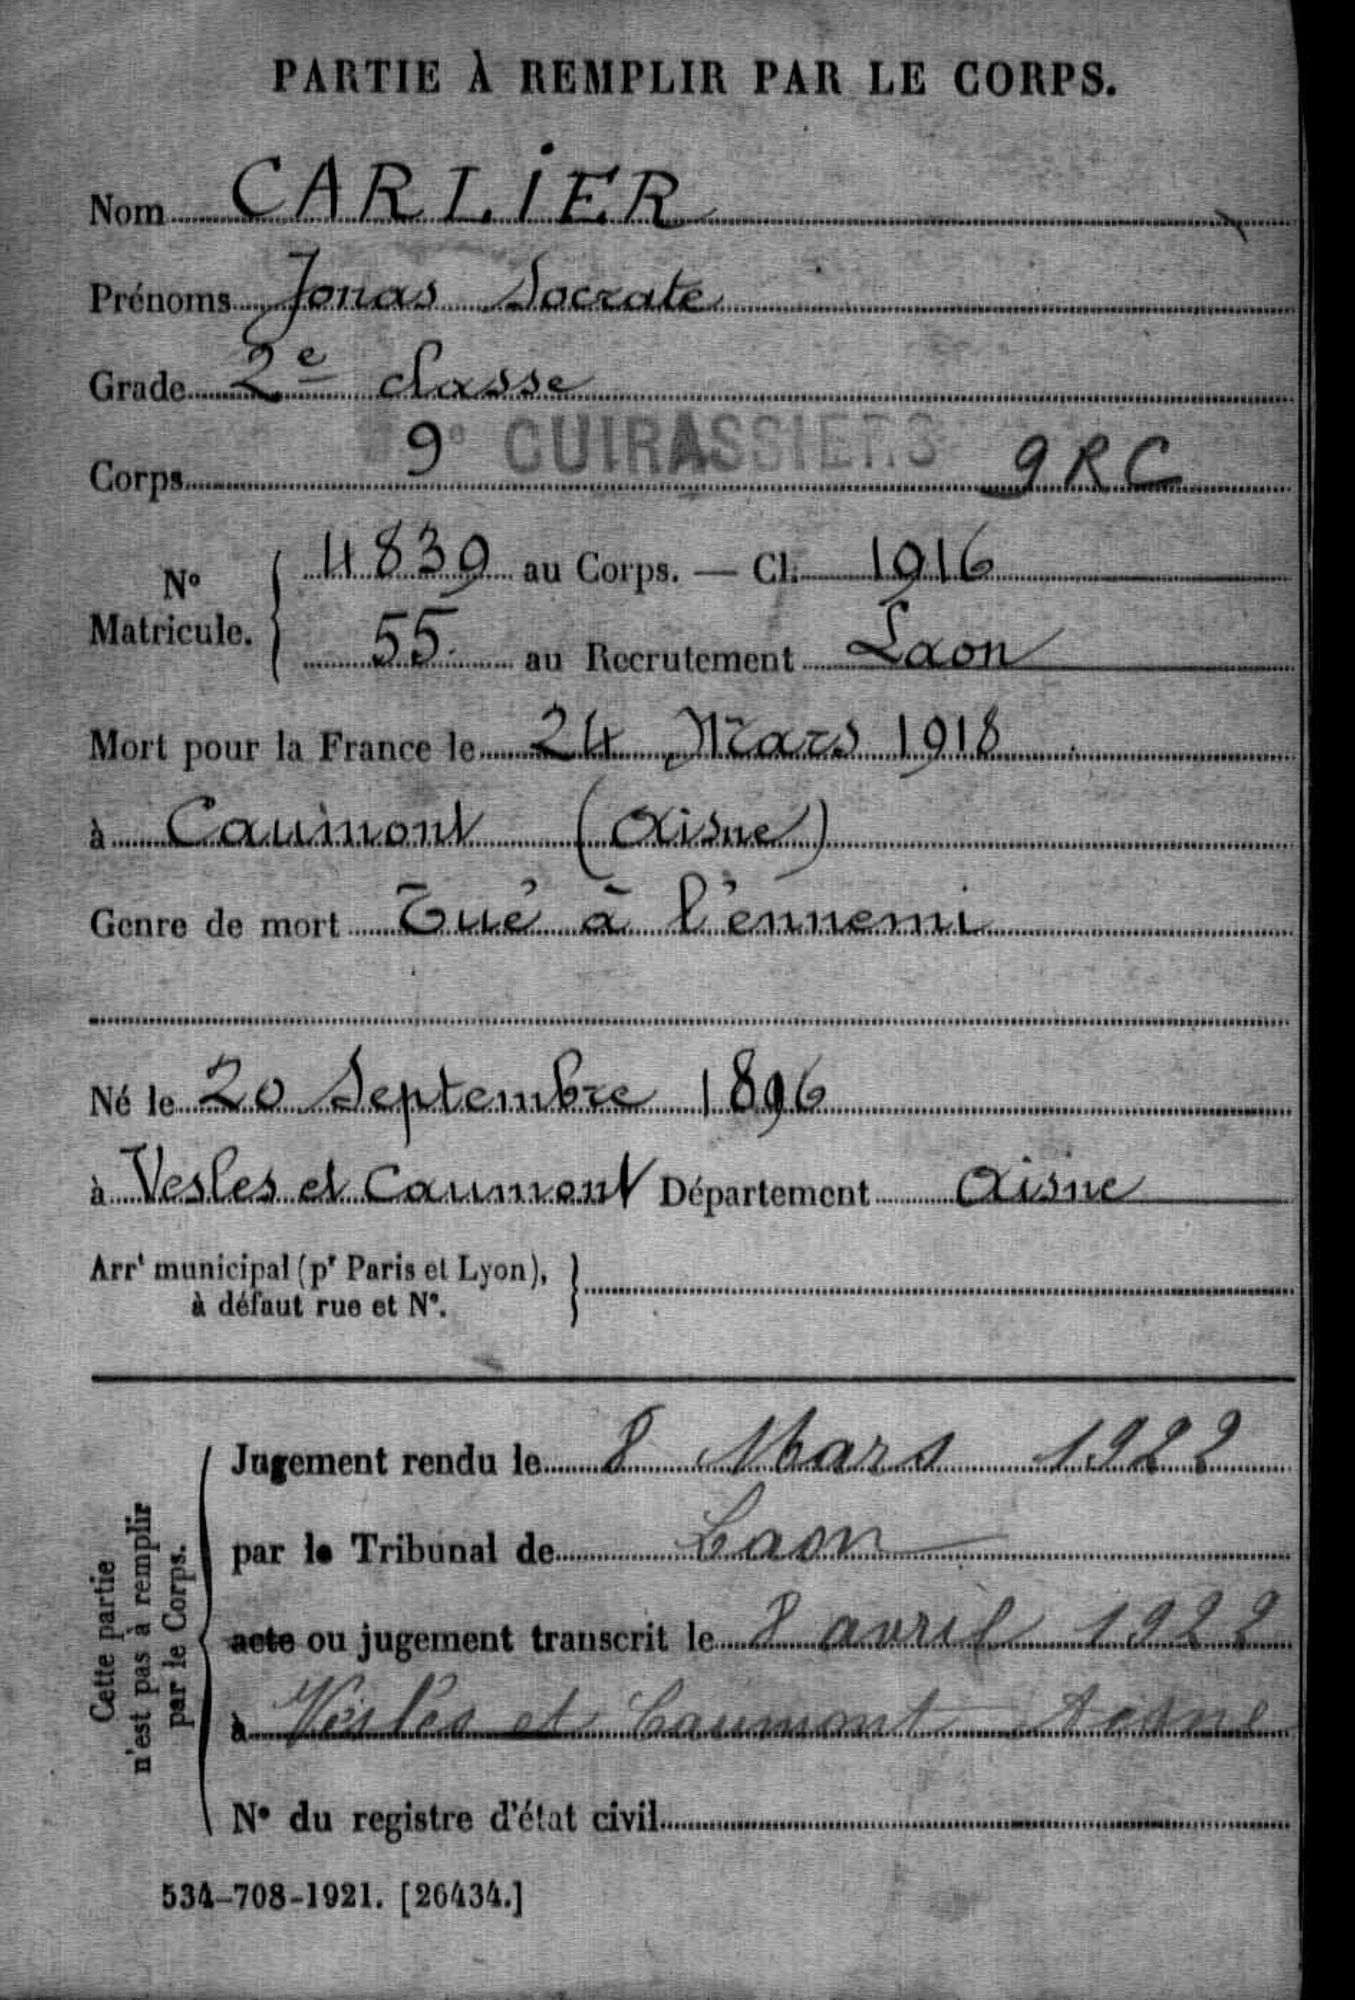 PARTIE À REMPLIR PAR LE CORPS.
Nom CARLIER
Prénoms Jonas Socrate
Grade 2e classe
Corps 9e CUIRASSIERS 9 R C
N° Matricule. { 4839 au Corps. — Cl. 1916
55. au Recrutement Laon
Mort pour la France le 24 Mars 1918
à Caumont (Aisne)
Genre de mort Tué à l'ennemi
Né le 20 Septembre 1896
à Vesles et Caumont Département Aisne
Arrt municipal (pr Paris et Lyon),
à défaut rue et N°.
Cette partie
n'est pas à remplir
par le Corps.
Jugement rendu le 8 Mars 1922
par le Tribunal de Laon
acte ou jugement transcrit le 8 avril 1922
à Vesles et Caumont Aisne
N° du registre d'état civil
534-708-1921. [26434.]